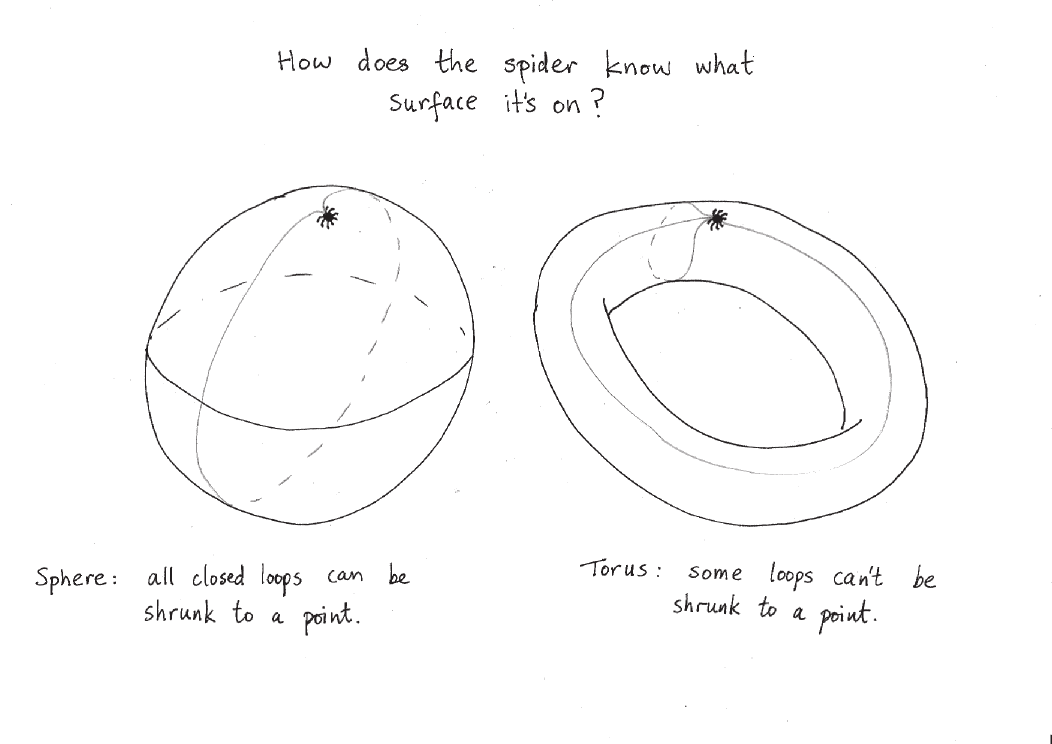 How does the spider know what
surface it's on?
Sphere: all closed loops can be
shrunk to a point.
Torus: some loops can't be
shrunk to a point.